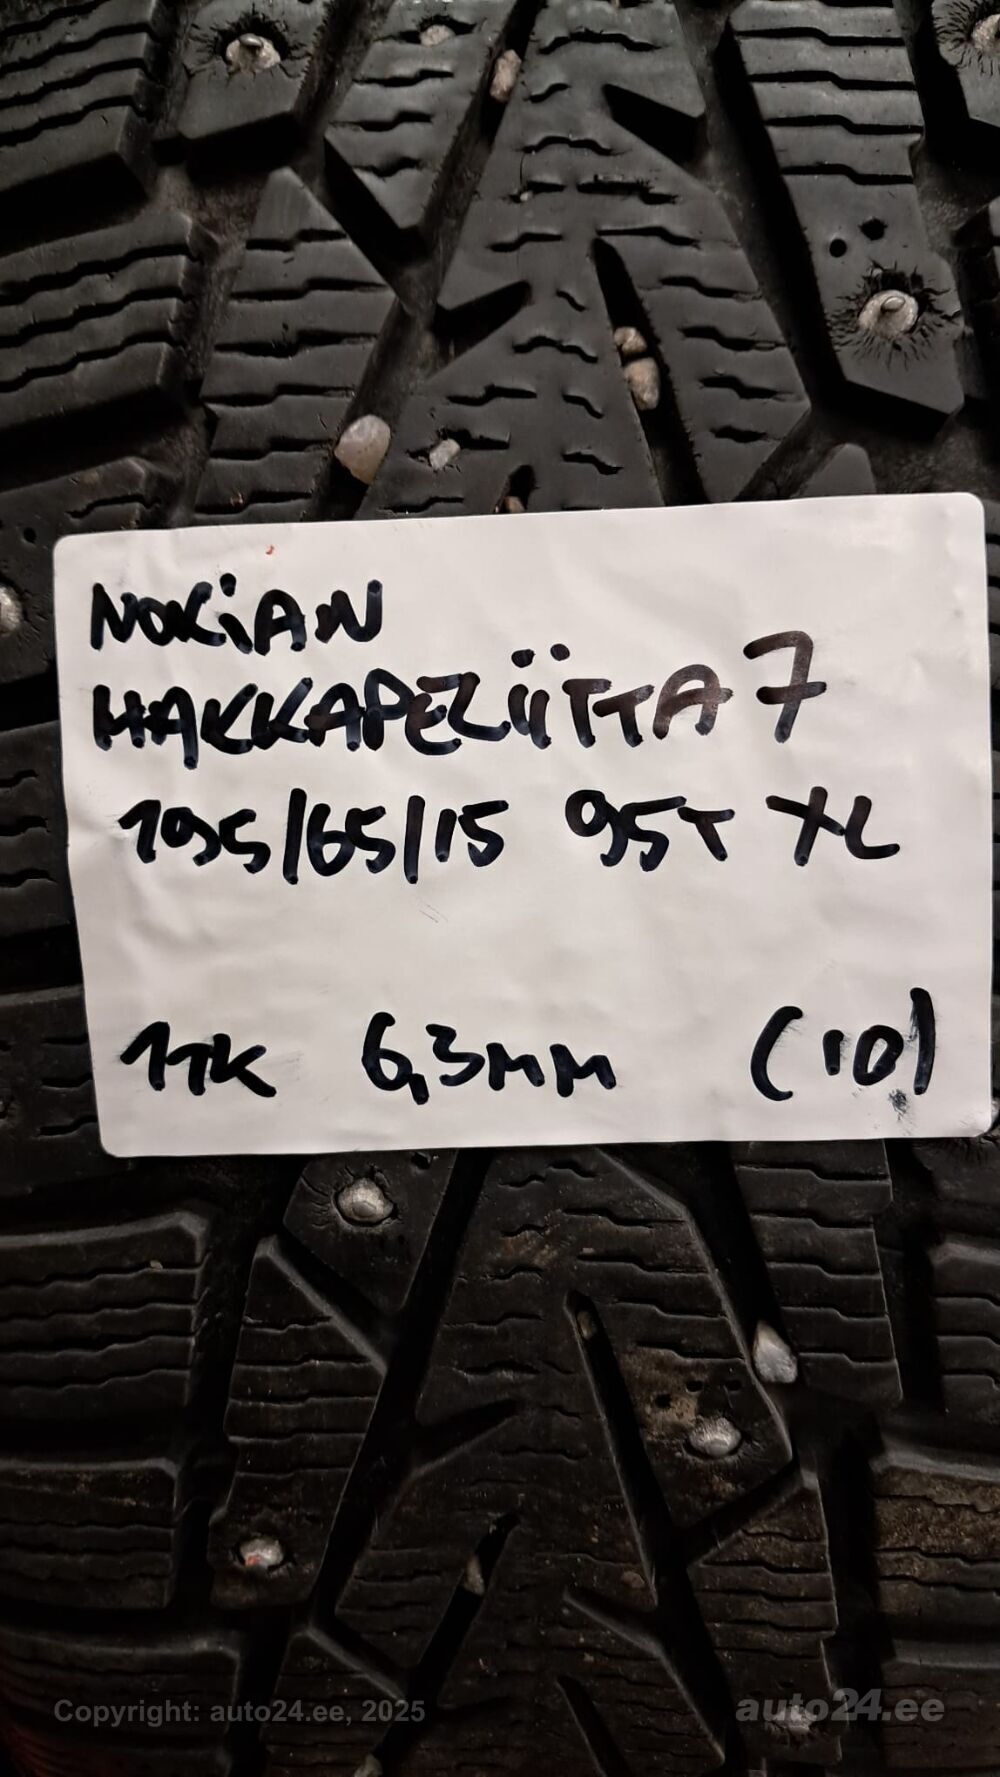 NOKiAN
HAKKAPELiiTTA 7
195/65/15 95T XL
1TK 6,3MM (10)
Copyright: auto24.ee, 2025 auto24.ee